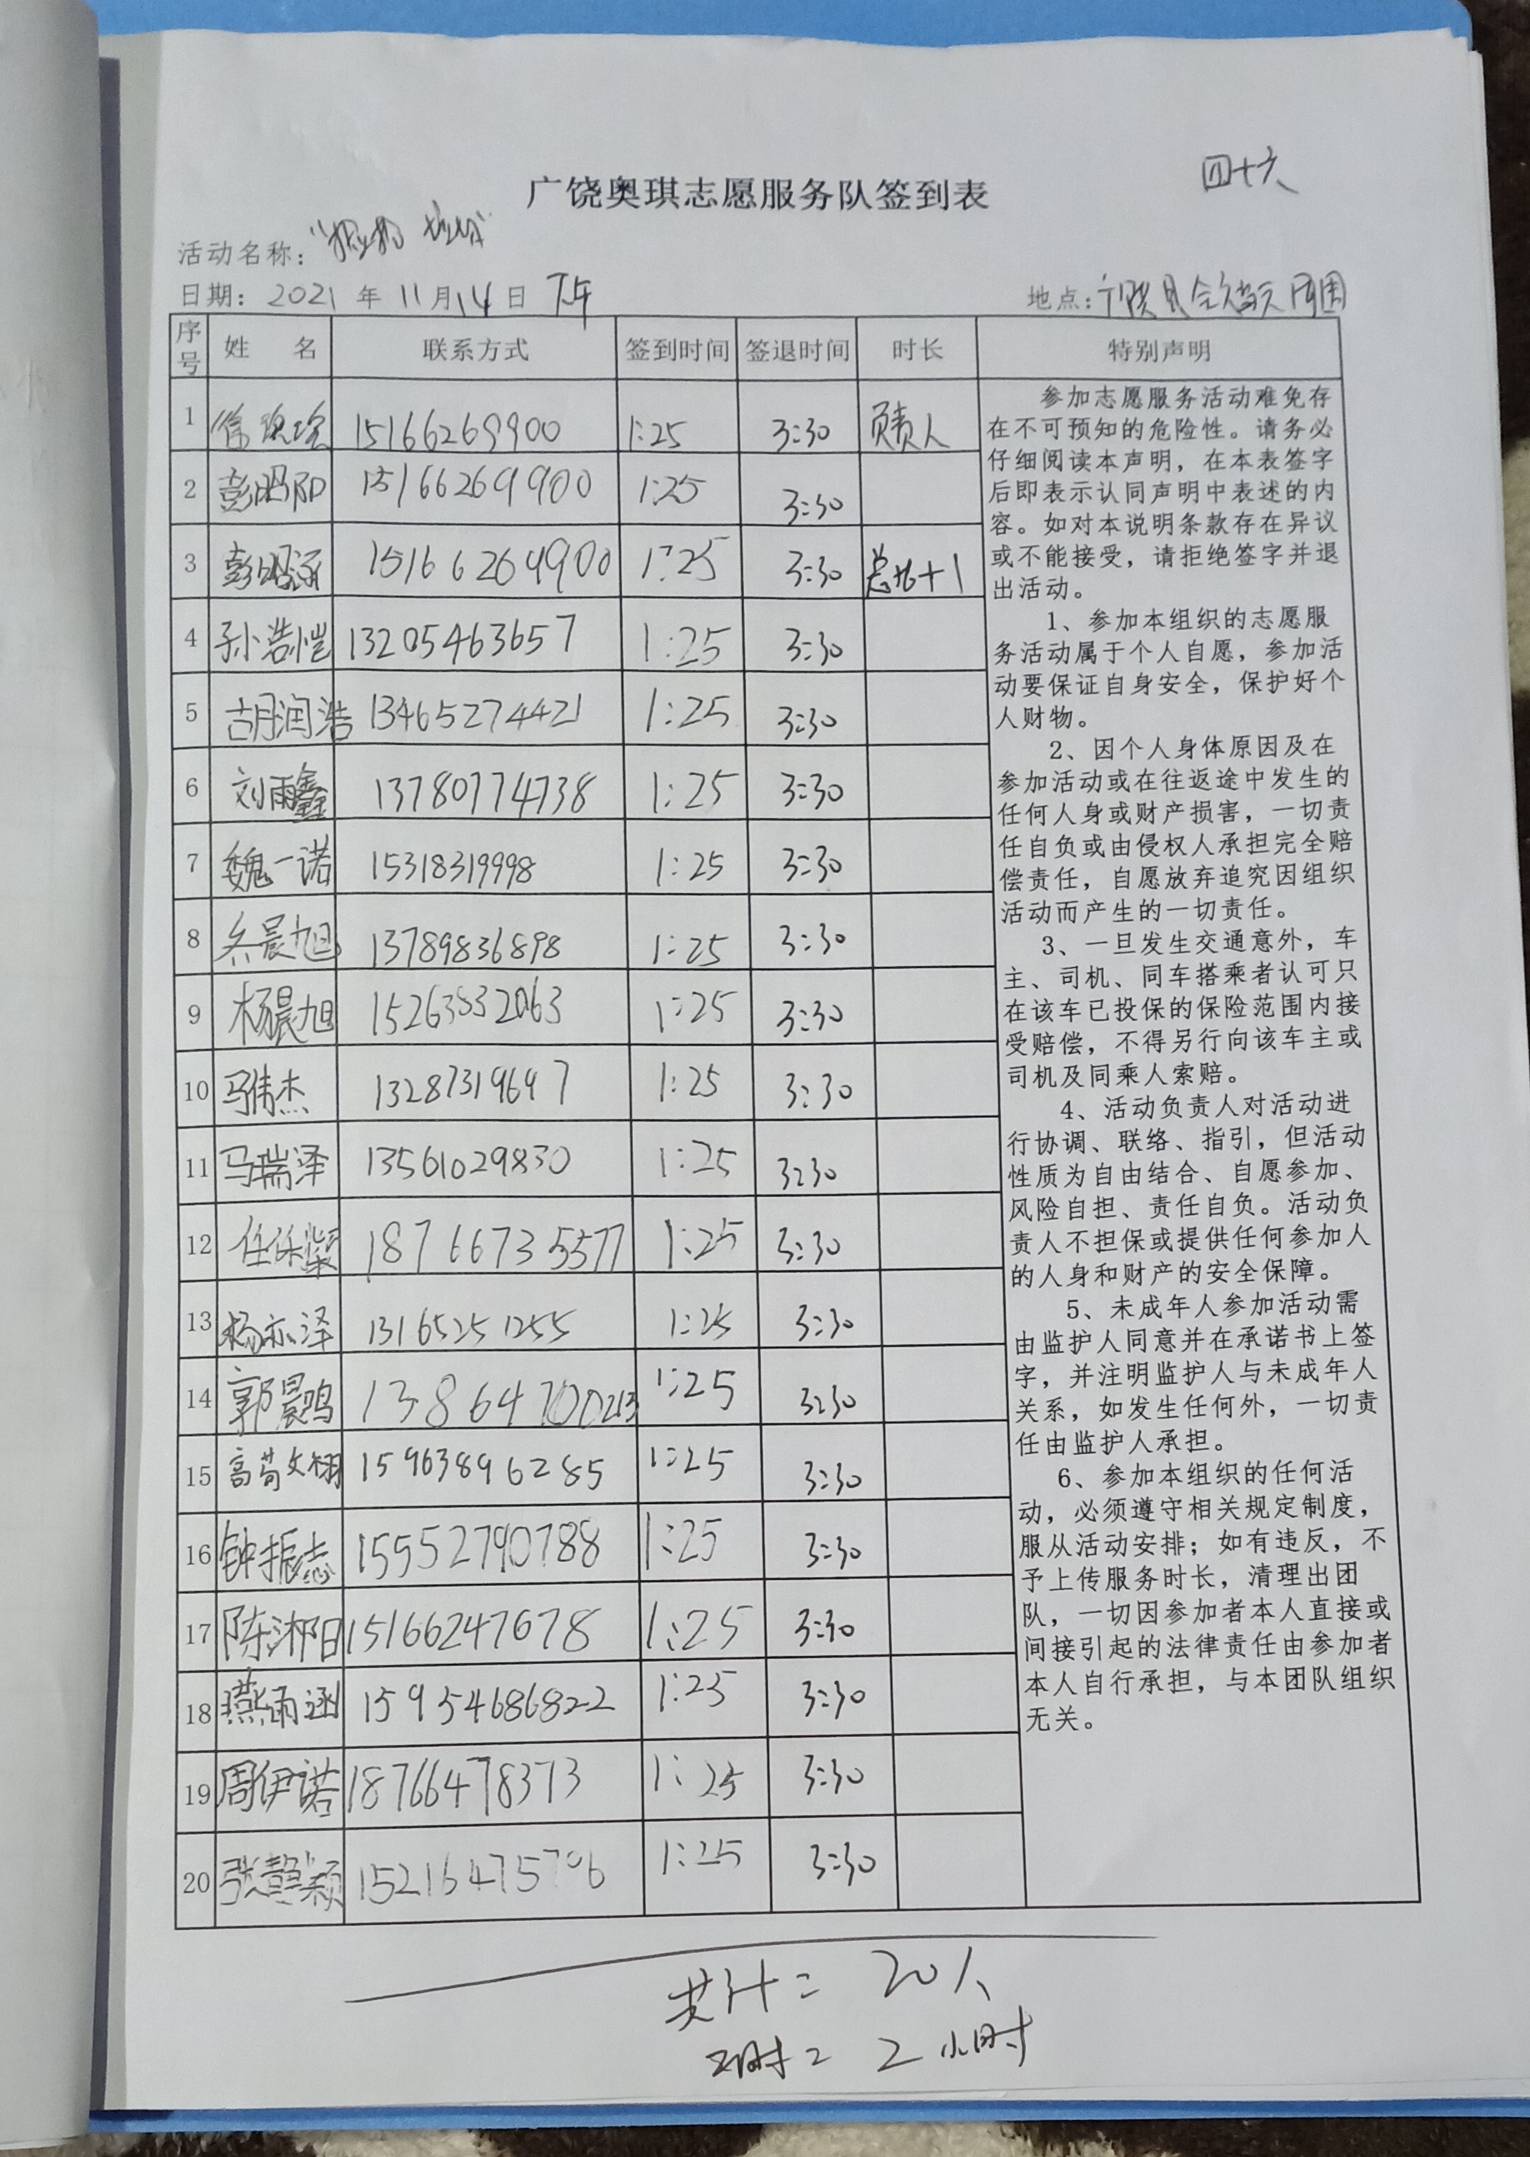 四十六
广饶奥琪志愿服务队签到表
活动名称：
日期：2021年11月14日 下午 地点：广饶县 周围
序号 姓 名 联系方式 签到时间 签退时间 时长 特别声明
1 徐 15166269900 1:25 3:30 负责人
2 彭 15166269900 1:25 3:30
3 彭 15166269900 1:25 3:30 +1
4 孙浩恺 13205463657 1:25 3:30
5 胡润浩 13465274421 1:25 3:30
6 刘雨鑫 13780774738 1:25 3:30
7 魏一诺 15318319998 1:25 3:30
8 晨旭 13789836898 1:25 3:30
9 杨晨旭 1:25 3:30
10 马伟杰 13287319697 1:25 3:30
11 马瑞泽 13561029830 1:25 3:30
12 任 18766735577 1:25 3:30
13 杨亦泽 13165251255 1:25 3:30
14 郭晨鸣 1:25 3:30
15 高苟文栩 15963896285 1:25 3:30
16 钟振志 15552790788 1:25 3:30
17 陈湘阳 15166247678 1:25 3:30
18 燕雨涵 15954686822 1:25 3:30
19 周伊诺 18766478373 1:25 3:30
20 张 颖 1:25 3:30
参加志愿服务活动难免存
在不可预知的危险性。请务必
仔细阅读本声明，在本表签字
后即表示认同声明中表述的内
容。如对本说明条款存在异议
或不能接受，请拒绝签字并退
出活动。
1、参加本组织的志愿服
务活动属于个人自愿，参加活
动要保证自身安全，保护好个
人财物。
2、因个人身体原因及在
参加活动或在往返途中发生的
任何人身或财产损害，一切责
任自负或由侵权人承担完全赔
偿责任，自愿放弃追究因组织
活动而产生的一切责任。
3、一旦发生交通意外，车
主、司机、同车搭乘者认可只
在该车已投保的保险范围内接
受赔偿，不得另行向该车主或
司机及同乘人索赔。
4、活动负责人对活动进
行协调、联络、指引，但活动
性质为自由结合、自愿参加、
风险自担、责任自负。活动负
责人不担保或提供任何参加人
的人身和财产的安全保障。
5、未成年人参加活动需
由监护人同意并在承诺书上签
字，并注明监护人与未成年人
关系，如发生任何外，一切责
任由监护人承担。
6、参加本组织的任何活
动，必须遵守相关规定制度，
服从活动安排；如有违反，不
予上传服务时长，清理出团
队，一切因参加者本人直接或
间接引起的法律责任由参加者
本人自行承担，与本团队组织
无关。
共计：20人
工时：2小时